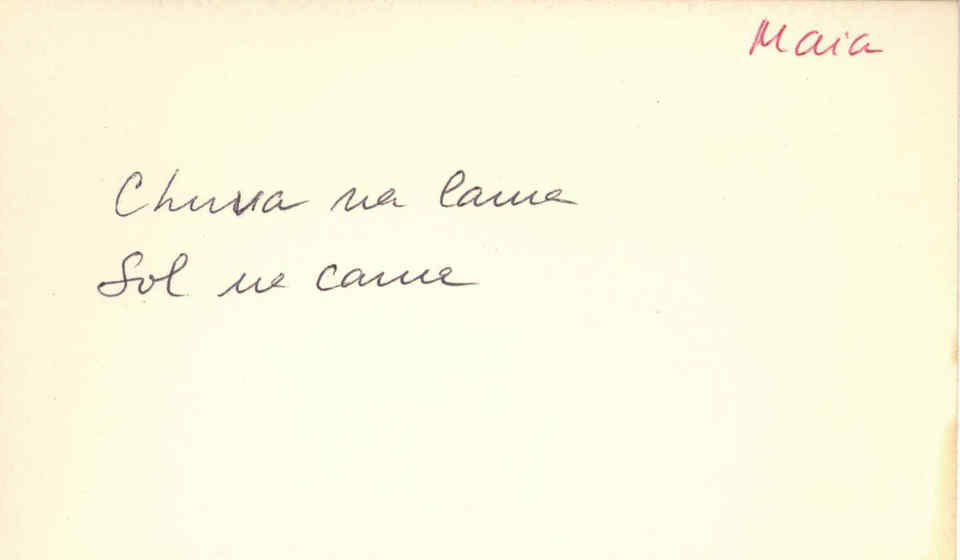 Maia
Chuva na lama
Sol na cama